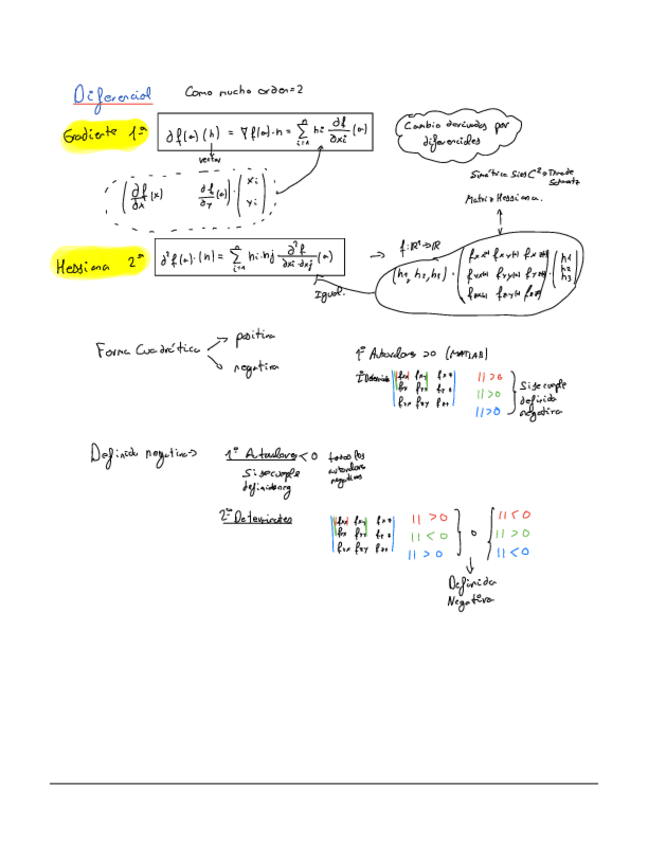 Diferencial Como mucho orden=2
Gradiente 1ª ∂f(a)(h) = ∇f(a)·h = Σ_{i=1}^{n} hi ∂f/∂xi (a)
Cambio derivadas por
diferenciales
vector
(∂f/∂x (x) ∂f/∂y (a)) · (xi yi)
Simétrica Si es C² → Th de
Schwartz
Matriz Hessiana.
Hessiana 2ª ∂²f(a)·(h) = Σ_{i=1}^{n} hi·hj ∂²f/∂xi·∂xj (a) →
Igual.
(h1, h2, h3) · · (h1 h2 h3)
Forma Cuadrática
positiva
negativa
1º Autovalores >0 (MATLAB)
fxx fxy fxz
fyx fyy fyz
fzx fzy fzz
||>0
||>0
||>0
Si se cumple
definida
negativa
Definida negativa → 1º Autovalores <0 todos los
autovalores
negativos
Si se cumple
2º Determinantes
fxx fxy fxz
fyx fyy fyz
fzx fzy fzz
|| >0
|| <0
|| >0
o
|| <0
|| >0
|| <0
Definida
Negativa